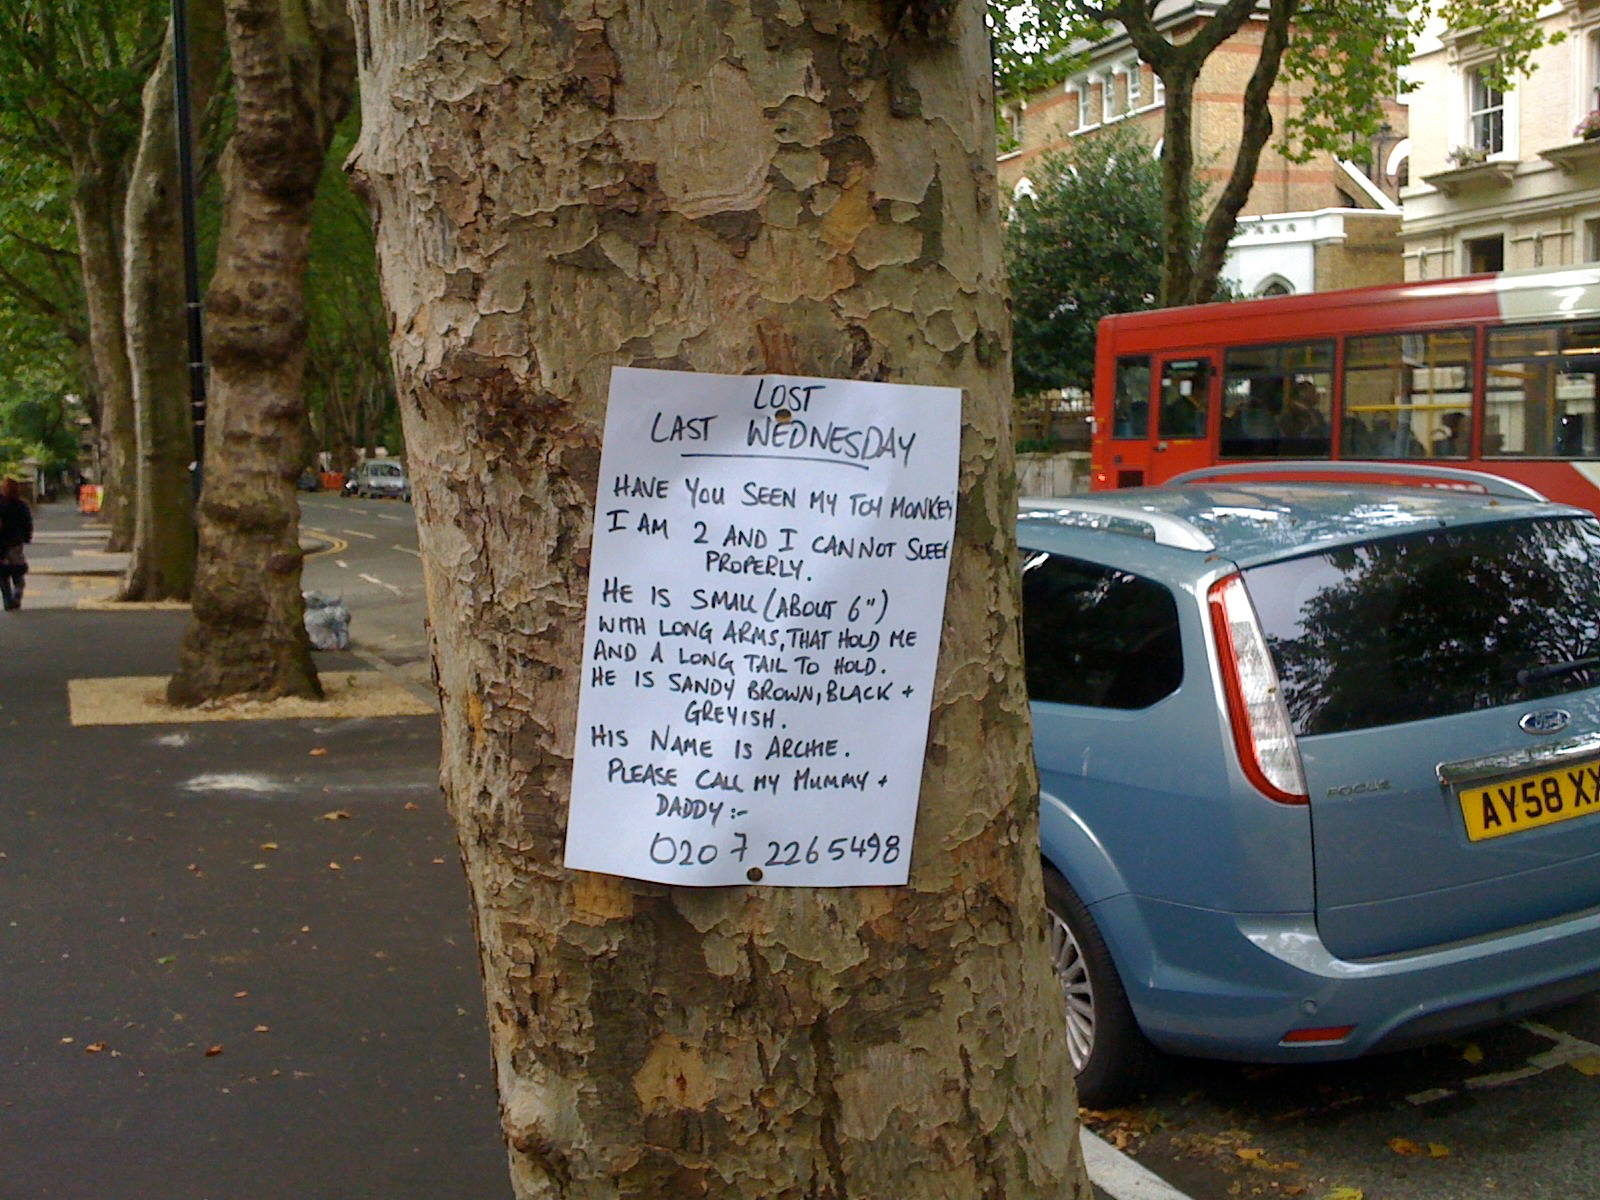 LOST
LAST WEDNESDAY
HAVE YOU SEEN MY TOY MONKEY
I AM 2 AND I CANNOT SLEEP
PROPERLY.
HE IS SMALL (ABOUT 6")
WITH LONG ARMS, THAT HOLD ME
AND A LONG TAIL TO HOLD.
HE IS SANDY BROWN, BLACK +
GREYISH.
HIS NAME IS ARCHIE.
PLEASE CALL MY MUMMY +
DADDY :-
020 7 2265498
Ford
FOCUS
AY58 XX